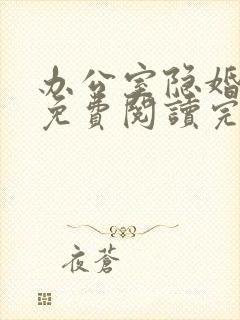 办公室隐婚
免費閱讀完
夜蒼